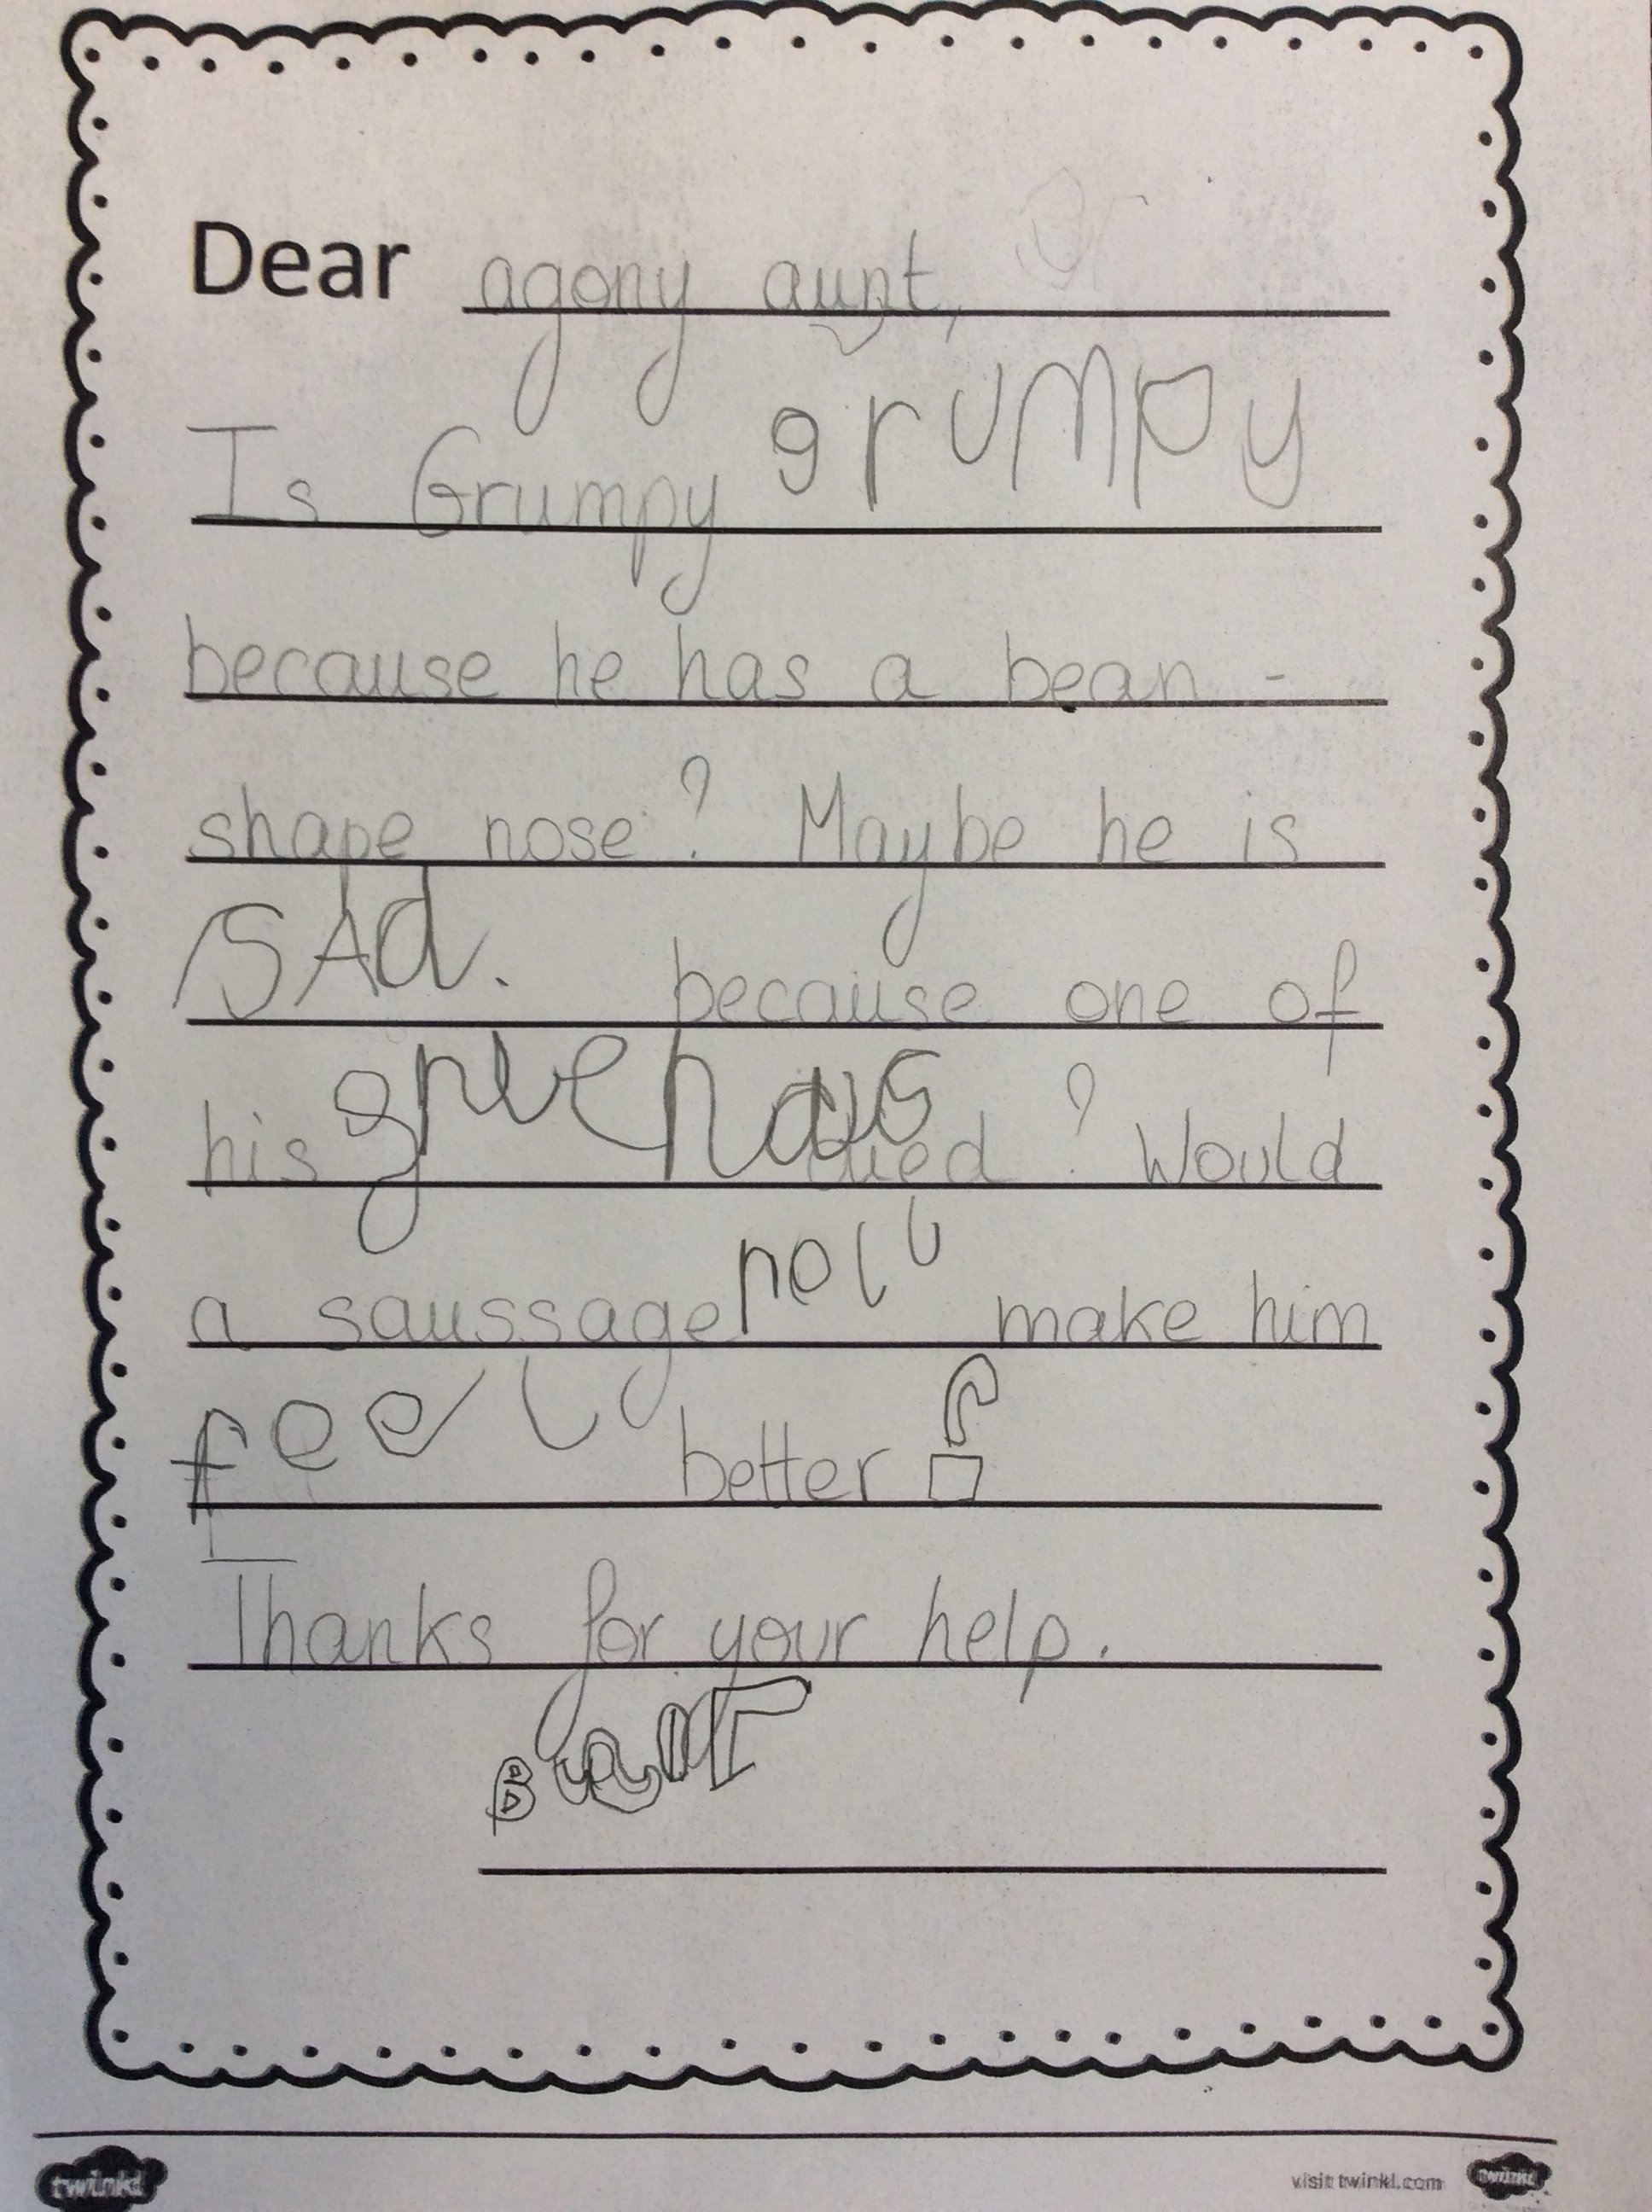 Dear agony aunt,
Is Grumpy grumpy
because he has a bean -
shape nose? Maybe he is
SAd. because one of
his died? Would
a saussage roll make him
feel better?
Thanks for your help.
twinkl visit twinkl.com twinkl